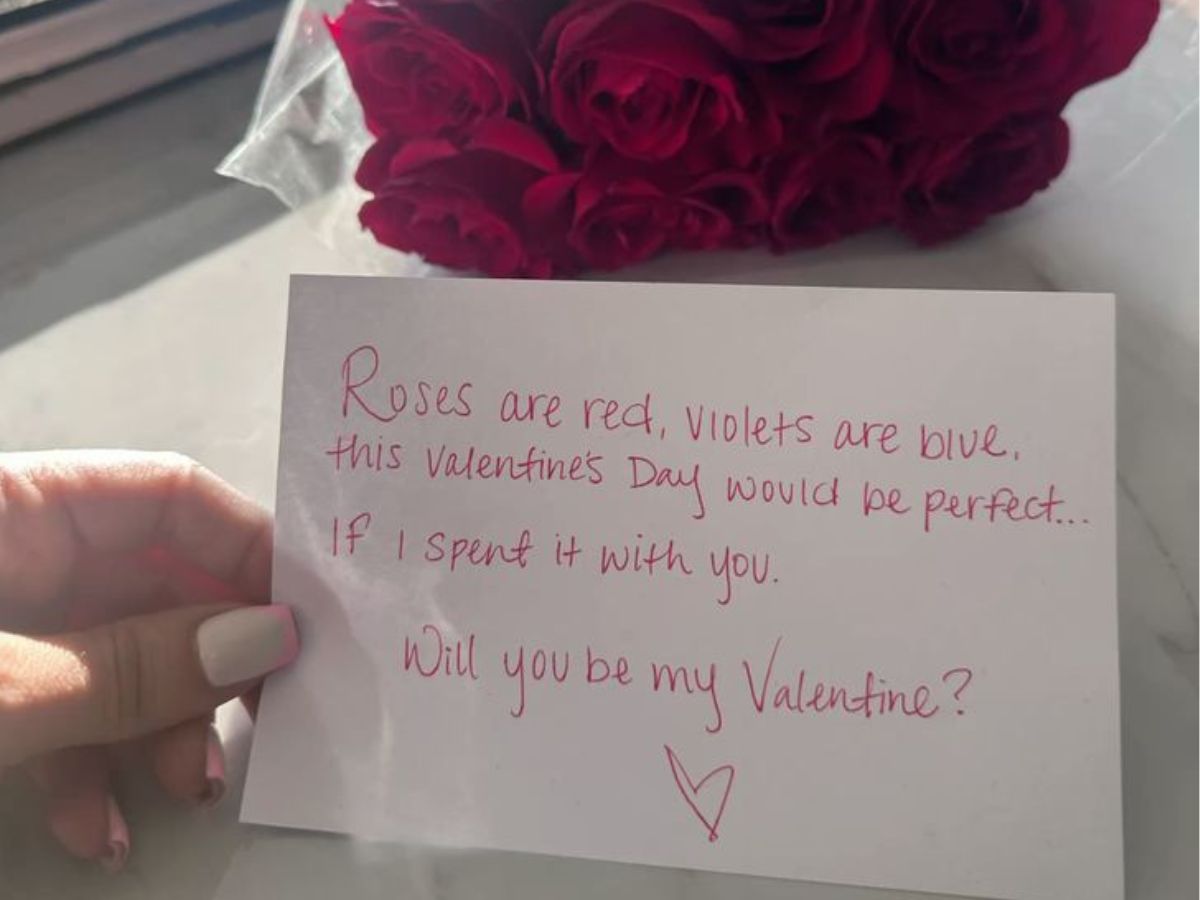 Roses are red, violets are blue.
this Valentine's Day would be perfect...
If I spent it with you.
Will you be my Valentine?